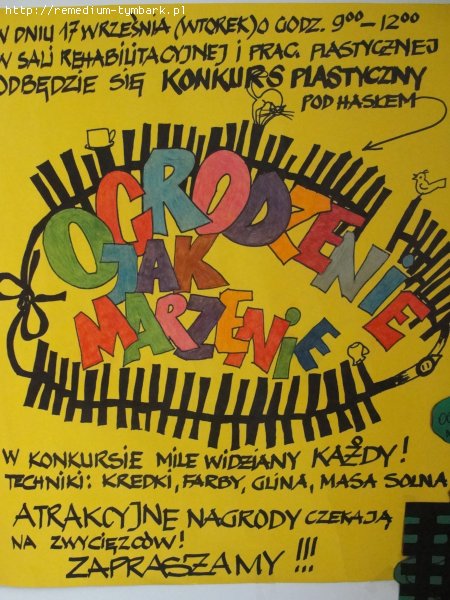 http://remedium-tymbark.pl
W DNIU 17 WRZEŚNIA (WTOREK) O GODZ. 9⁰⁰-12⁰⁰
W SALI REHABILITACYJNEJ I PRAC. PLASTYCZNEJ
ODBĘDZIE SIĘ KONKURS PLASTYCZNY
POD HASŁEM
OGRODZENIE
JAK
MARZENIE
W KONKURSIE MILE WIDZIANY KAŻDY!
TECHNIKI: KREDKI, FARBY, GLINA, MASA SOLNA
ATRAKCYJNE NAGRODY CZEKAJĄ
NA ZWYCIĘZCÓW!
ZAPRASZAMY !!!